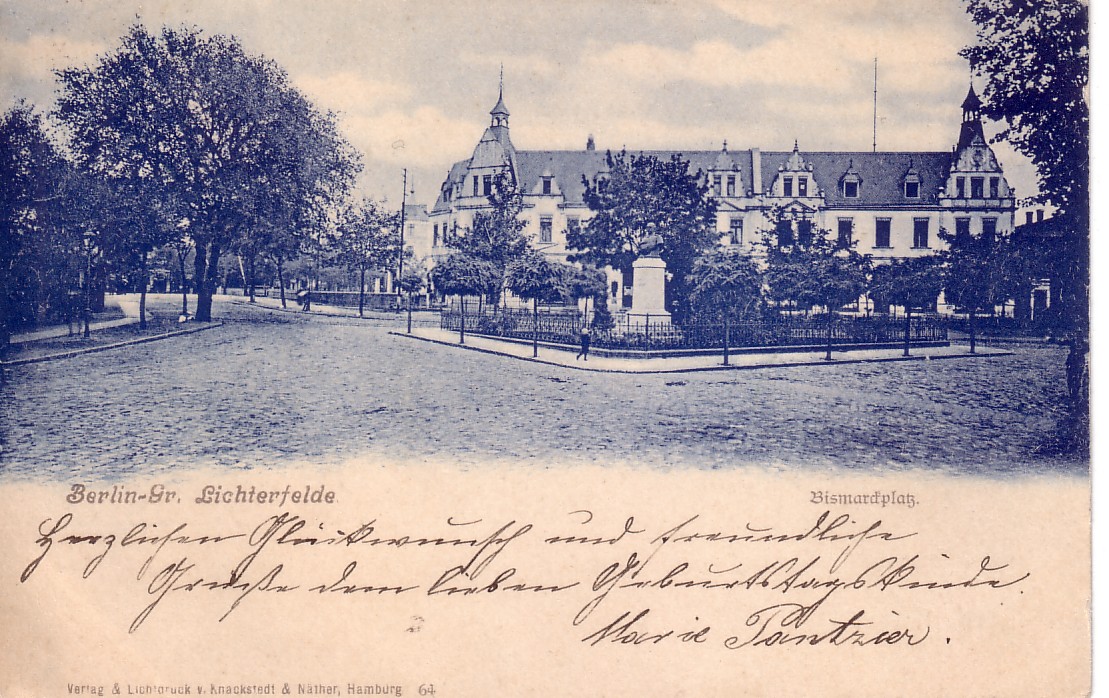 Berlin-Gr. Lichterfelde.
Bismarckplatz.
Herzlichen Glückwunsch und freundliche
Grüße dem lieben Geburtstagskinde.
Marie Pantzier.
Verlag & Lichtdruck v. Knackstedt & Näther, Hamburg 64